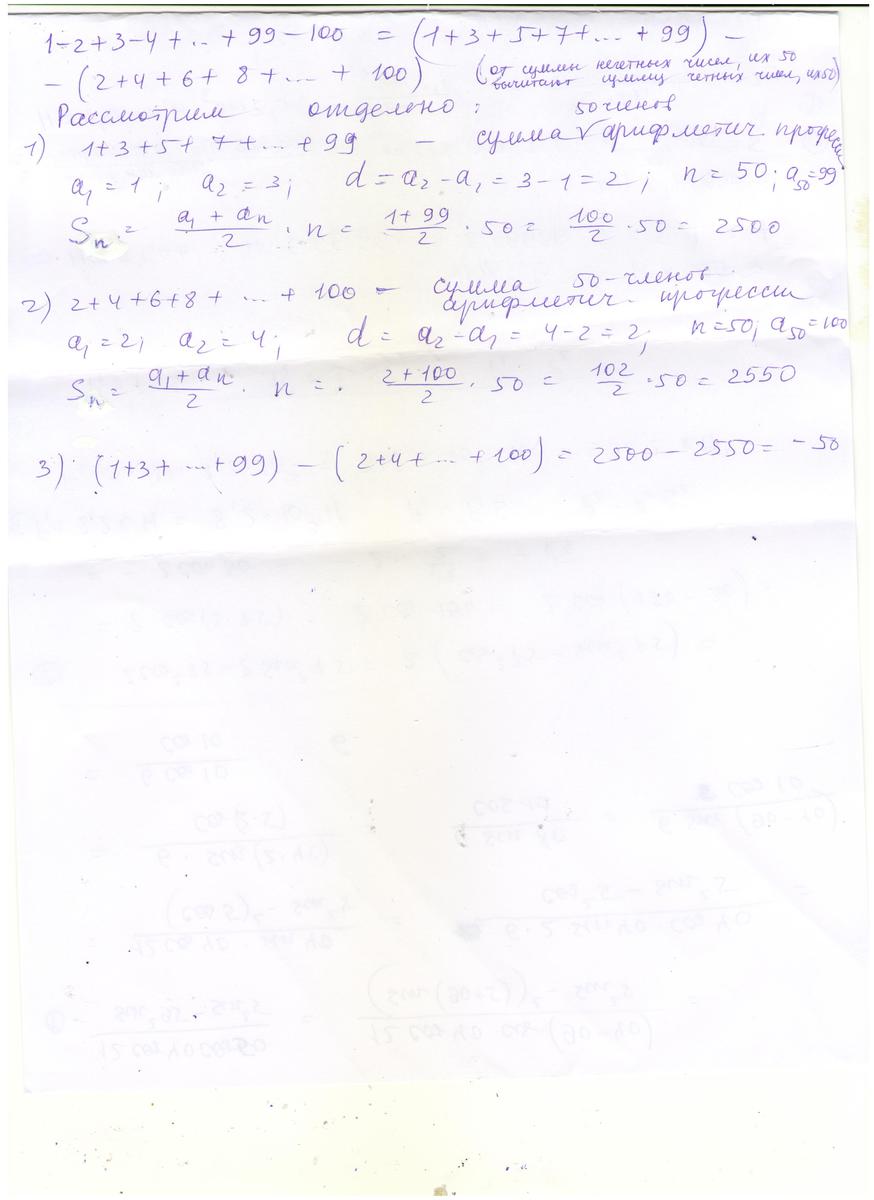 1-2+3-4+..+99-100 = (1+3+5+7+...+99) -
- (2+4+6+8+...+100) (от суммы нечетных чисел, их 50
вычитают сумму четных чисел, их 50)
Рассмотрим отделено: 50 членов
1) 1+3+5+7+...+99 - сумма √ арифметич. прогресси
a₁ = 1; a₂ = 3; d = a₂ - a₁ = 3 - 1 = 2; n = 50; a₅₀ = 99
Sₙ = (a₁ + aₙ)/2 · n = (1 + 99)/2 · 50 = 100/2 · 50 = 2500
2) 2+4+6+8+...+100 - сумма 50-членов
арифметич. прогрессии
a₁ = 2; a₂ = 4; d = a₂ - a₁ = 4 - 2 = 2; n = 50; a₅₀ = 100
Sₙ = (a₁ + aₙ)/2 · n = (2 + 100)/2 · 50 = 102/2 · 50 = 2550
3) (1+3+...+99) - (2+4+...+100) = 2500 - 2550 = -50